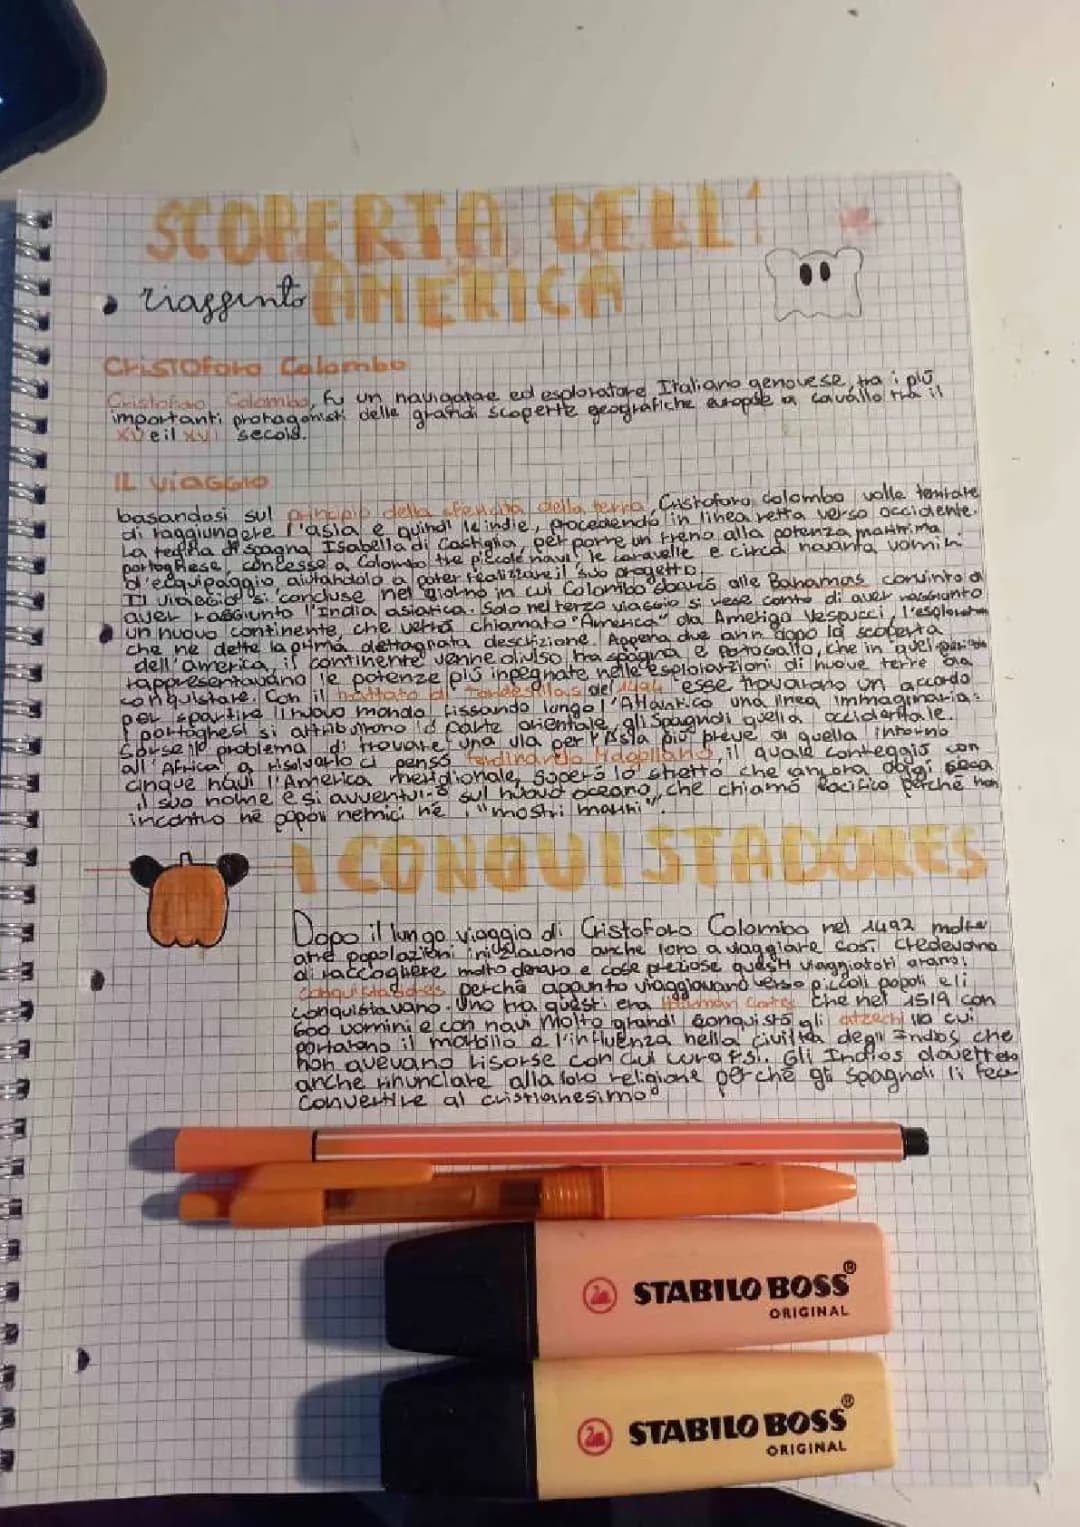 SCOPERTA DELL'
riassunto AMERICA
CRISTOFORO Colombo
Cristoforo Colombo, fu un navigatore ed esploratore Italiano genovese, tra i più
importanti protagonisti delle grandi scoperte geografiche europee a cavallo tra il
XV e il XVI secolo.
IL VIAGGIO
basandosi sul principio della sfericità della terra, Cristoforo Colombo volle tentare
di raggiungere l'asia e quindi le indie, procedendo in linea retta verso occidente.
La regina di spagna Isabella di Castiglia, per porre un freno alla potenza marittima
portoghese, concesse a Colombo tre piccole navi, le caravelle e circa novanta uomini
d'equipaggio aiutandolo a poter realizzare il suo progetto.
Il viaggio si concluse nel giorno in cui Colombo sbarcò alle Bahamas convinto di
aver raggiunto l'India asiatica. Solo nel terzo viaggio si rese conto di aver raggiunto
un nuovo continente, che verrà chiamato "America" da Amerigo Vespucci, l'esploratore
che ne dette la prima dettagnata descrizione. Appena due anni dopo la scoperta
dell'america, il continente venne diviso tra spagna e Portogallo, che in quel periodo
rappresentavano le potenze più inpegnate nelle esploraizioni di nuove terre da
conquistare. Con il trattato di Tordesillas del 1494 esse trovarono un accordo
per spartire il nuovo mondo fissando lungo l'Atlantico una linea immaginaria:
i portoghesi si attribuirono la parte orientale, gli Spagnoli quella occidentale.
Sorse il problema di trovare una via per l'Asia più breve di quella intorno
all'Africa a risolverlo ci pensò Ferdinando Magellano, il quale
cinque navi l'America meridionale, superò lo stretto che ancora oggi
il suo nome e si avventurò sul nuovo oceano, che chiamò Pacifico perché non
incontrò né popoli nemici né i "mostri marini".
I CONQUISTADORES
Dopo il lungo viaggio di Cristoforo Colombo nel 1492 molte
altre popolazioni iniziarono anche loro a viaggiare così credevano
di raccogliere molto denaro e cose preziose questi viaggiatori erano i
conquistadores perché appunto viaggiavano verso piccoli popoli e li
conquistavano. Uno tra questi era Cortes che nel 1519 con
600 uomini e con navi molto grandi conquistò gli atzechi cui
portarono il morbillo e l'influenza nella civiltà degli Indios che
non avevano risorse con cui curarsi. Gli Indios dovettero
anche rinunciare alla loro religione perché gli spagnoli li fece
convertire al cristianesimo
STABILO BOSS®
ORIGINAL
STABILO BOSS®
ORIGINAL